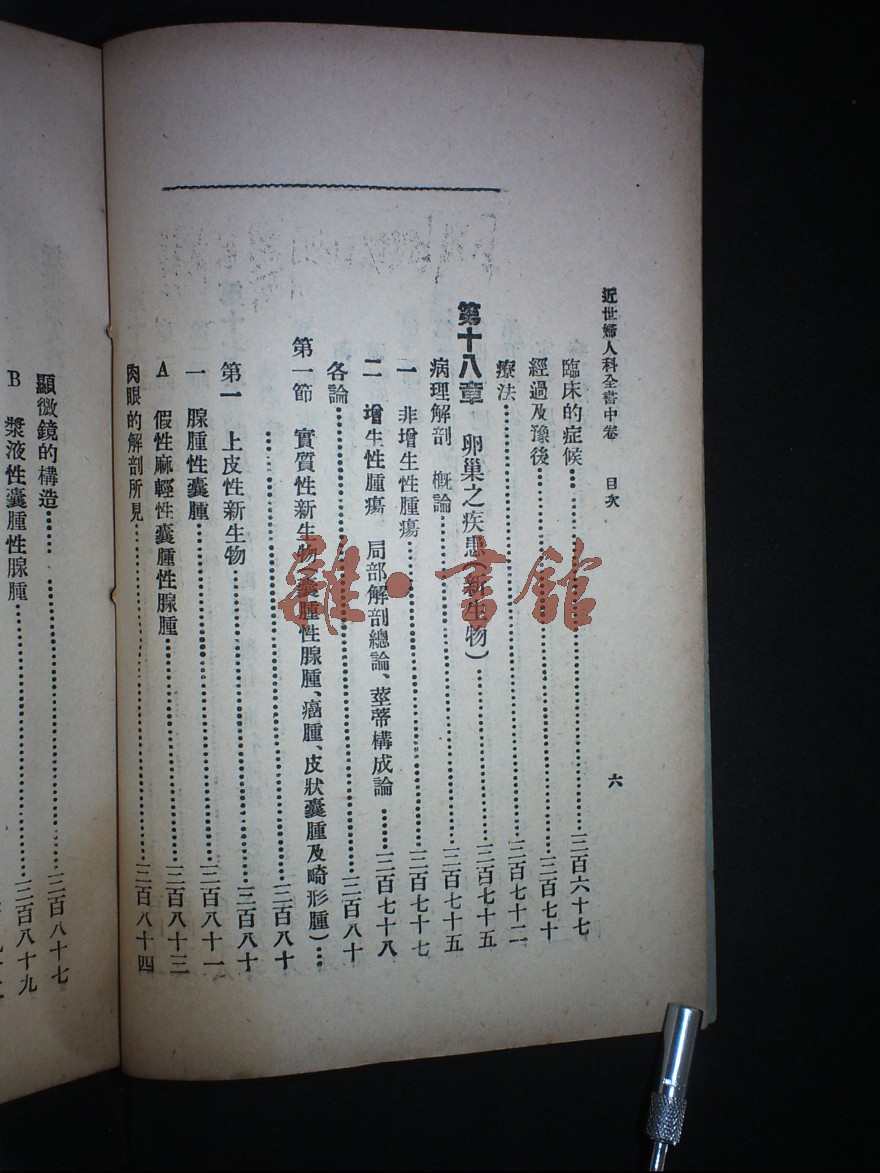 近世婦人科全書中卷 目次 六
臨床的症候……三百六十七
經過及豫後……三百七十
療法……三百七十二
第十八章 卵巢之疾患(新生物)……三百七十五
病理解剖 概論……三百七十五
一 非增生性腫瘍……三百七十七
二 增生性腫瘍 局部解剖總論、莖蒂構成論……三百七十八
各論……三百八十
第一節 實質性新生物(囊腫性腺腫、癌腫、皮狀囊腫及畸形腫)…
……三百八十
第一 上皮性新生物……三百八十
一 腺腫性囊腫……三百八十一
A 假性麻輕性囊腫性腺腫……三百八十三
肉眼的解剖所見……三百八十四
顯微鏡的構造……三百八十七
B 漿液性囊腫性腺腫……三百八十九
雜·書館